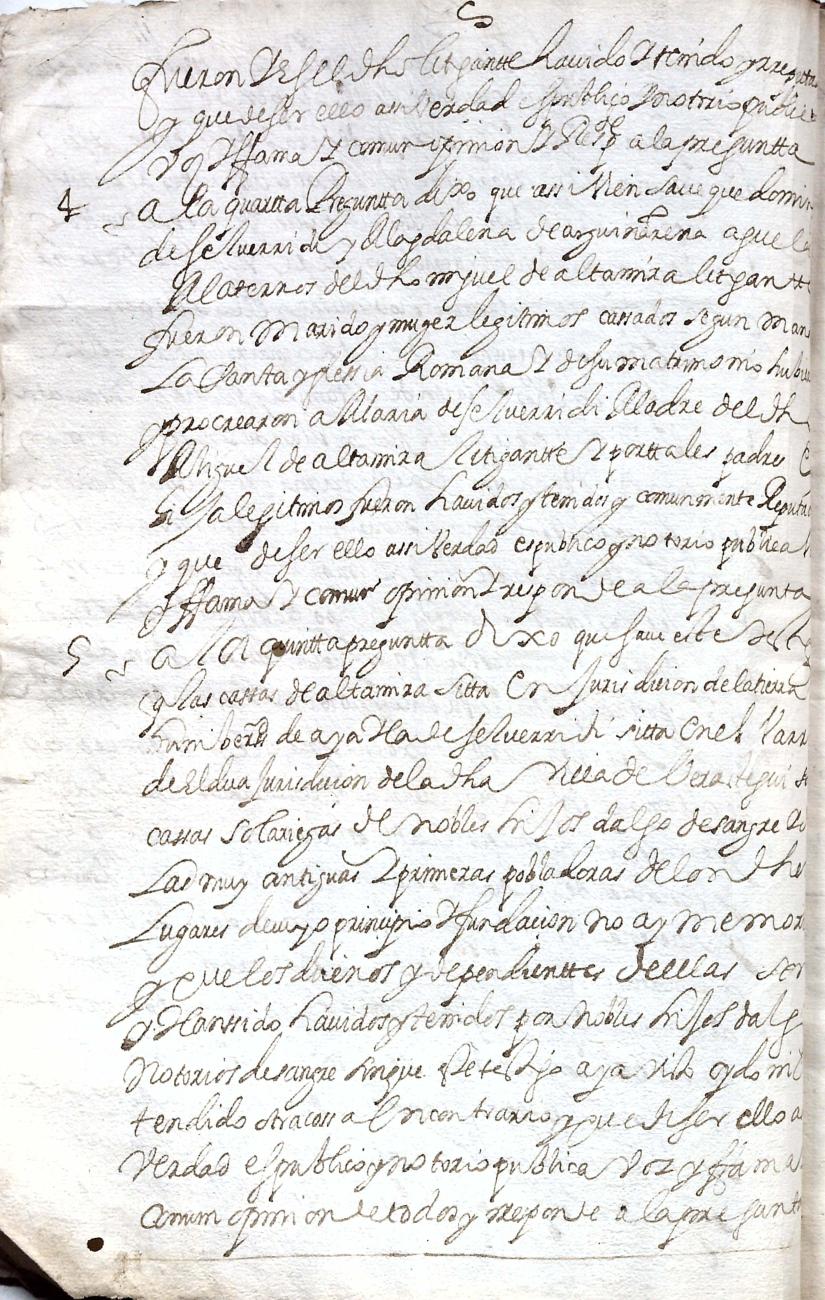 fueron y es el dho litigantte havido y tenido y rreputa
y que de ser ello assi Verdad es publico y notorio public
voz y ffama y comun opinion y Resp.de a la preguntta
4 a la quartta Preguntta dixo que assi Mien save que domin
de selverridi y Magdalena de arguinarena aguela
Maternos del dho miguel de altamira litigantte
fueron Marido y muger legitimos cassados segun man
La Santa yglessia Romana y de su matrimonio hubie
y procrearon a Maria de selverridi Madre del dh
Miguel de altamira litigantte y por ttales padres e
hija legitimos fueron havidos y tenidos y comunmente Reputa
y que de ser ello assi Verdad es publico y notorio publica v
y ffama y comun opinion y responde a la pregunta
5 a la quintta preguntta dixo que save este testig
q las cassas de altamira sitta en Jurisdicion de la tierra
de aya y la de selverridi sitta en el Varr
de Eldua Jurisdicion de la dha Villa de Verastegui so
cassas solariegas de nobles hijos dalgo de sangre
Las muy antiguas y primeras pobladoras de los dho
Lugares de cuyo principio y fundacion no ay memor
y que los dueños y dependienttes de ellas son
y Han ssido havidos y tenidos por nobles hijos dalg
Notorios de sangre sin que este testigo aya visto oydo ni
tendido otra cossa en contrario y que de ser ello a
Verdad es publico y notorio publica voz y ffama
Comun opinion de todos y responde a la preguntt